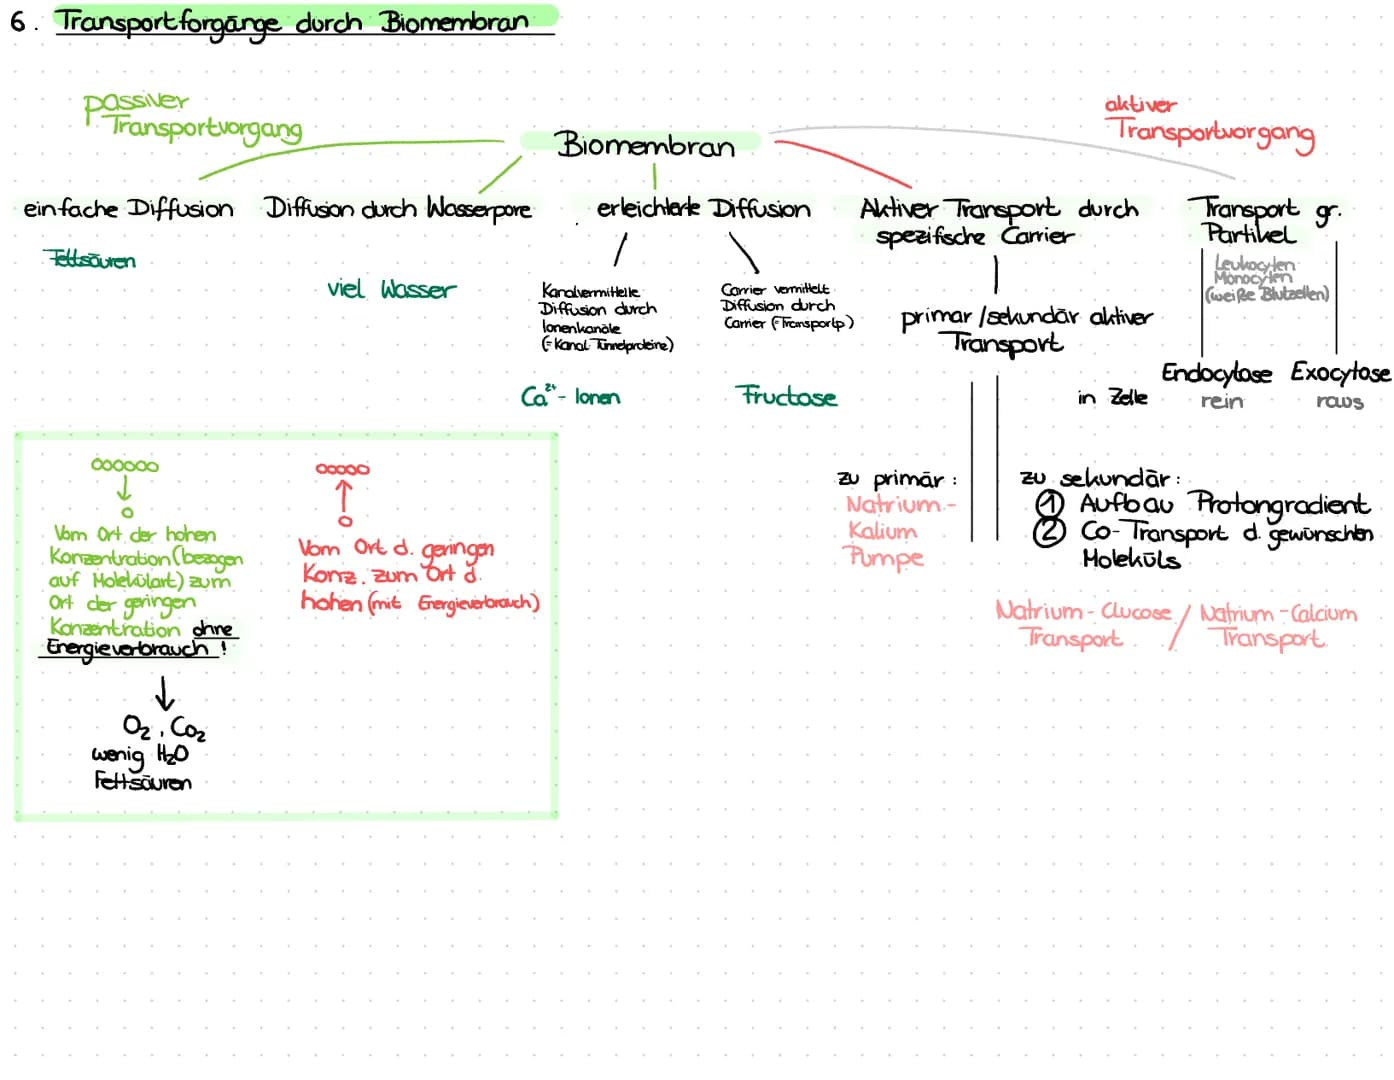 6. Transportforgänge durch Biomembran
passiver
Transportvorgang
aktiver
Transportvorgang
Biomembran
einfache Diffusion
Fettsäuren
Diffusion durch Wasserpore
viel Wasser
erleichterte Diffusion
Kanalvermittelte
Diffusion durch
Ionenkanäle
(= Kanal Tunnelproteine)
Ca²⁺- Ionen
Carrier vermittelt
Diffusion durch
Carrier (=Transportp)
Fructose
Aktiver Transport durch
spezifische Carrier
primär/sekundär aktiver
Transport
in Zelle
zu primär:
Natrium-
Kalium
Pumpe
zu sekundär:
① Aufbau Protongradient
② Co-Transport d. gewünschten
Moleküls
Natrium-Glucose / Natrium-Calcium
Transport Transport
Transport gr.
Partikel
Leukocyten
Monocyten
(weiße Blutzellen)
Endocytose Exocytose
rein raus
Vom Ort der hohen
Konzentration (bezogen
auf Molekülart) zum
Ort der geringen
Konzentration ohne
Energieverbrauch!
O₂, Co₂
wenig H₂O
Fettsäuren
Vom Ort d. geringen
Konz. zum Ort d.
hohen (mit Energieverbrauch)